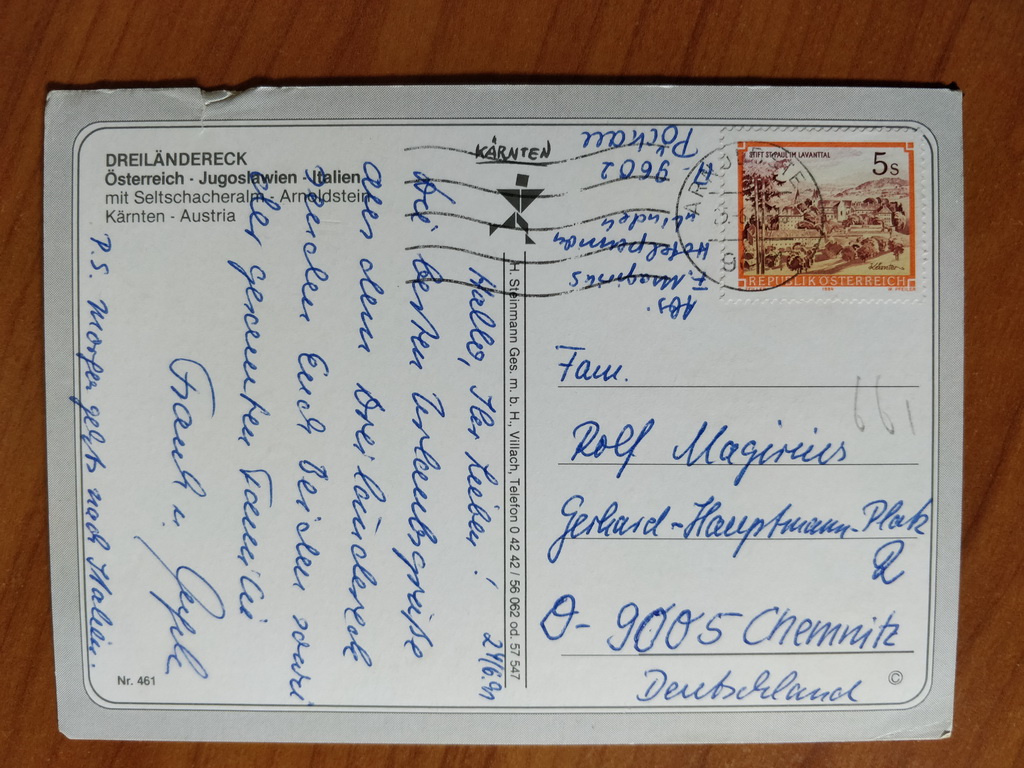 DREILÄNDERECK
Österreich · Jugoslawien · Italien
mit Seltschacheralm, Arnoldstein
Kärnten - Austria
24/6.91
Hallo, Ihr Lieben!
Die besten Urlaubsgrüße
aus dem Dreiländereck
senden Euch Beiden sowie
der gesamten Familie
Frank u.
P.S. Morgen gehts nach Italien.
Nr. 461
H. Steinmann Ges. m. b. H., Villach, Telefon 0 42 42 / 56 062 od. 57 547
KÄRNTEN
Abs.
F. Magirius
Hotelpension
9602
STIFT ST. PAUL IM LAVANTTAL
5s
Kärnten
REPUBLIK ÖSTERREICH
Fam.
Rolf Magirius
Gerhard-Hauptmann-Platz
2
D-9005 Chemnitz
Deutschland
661
©